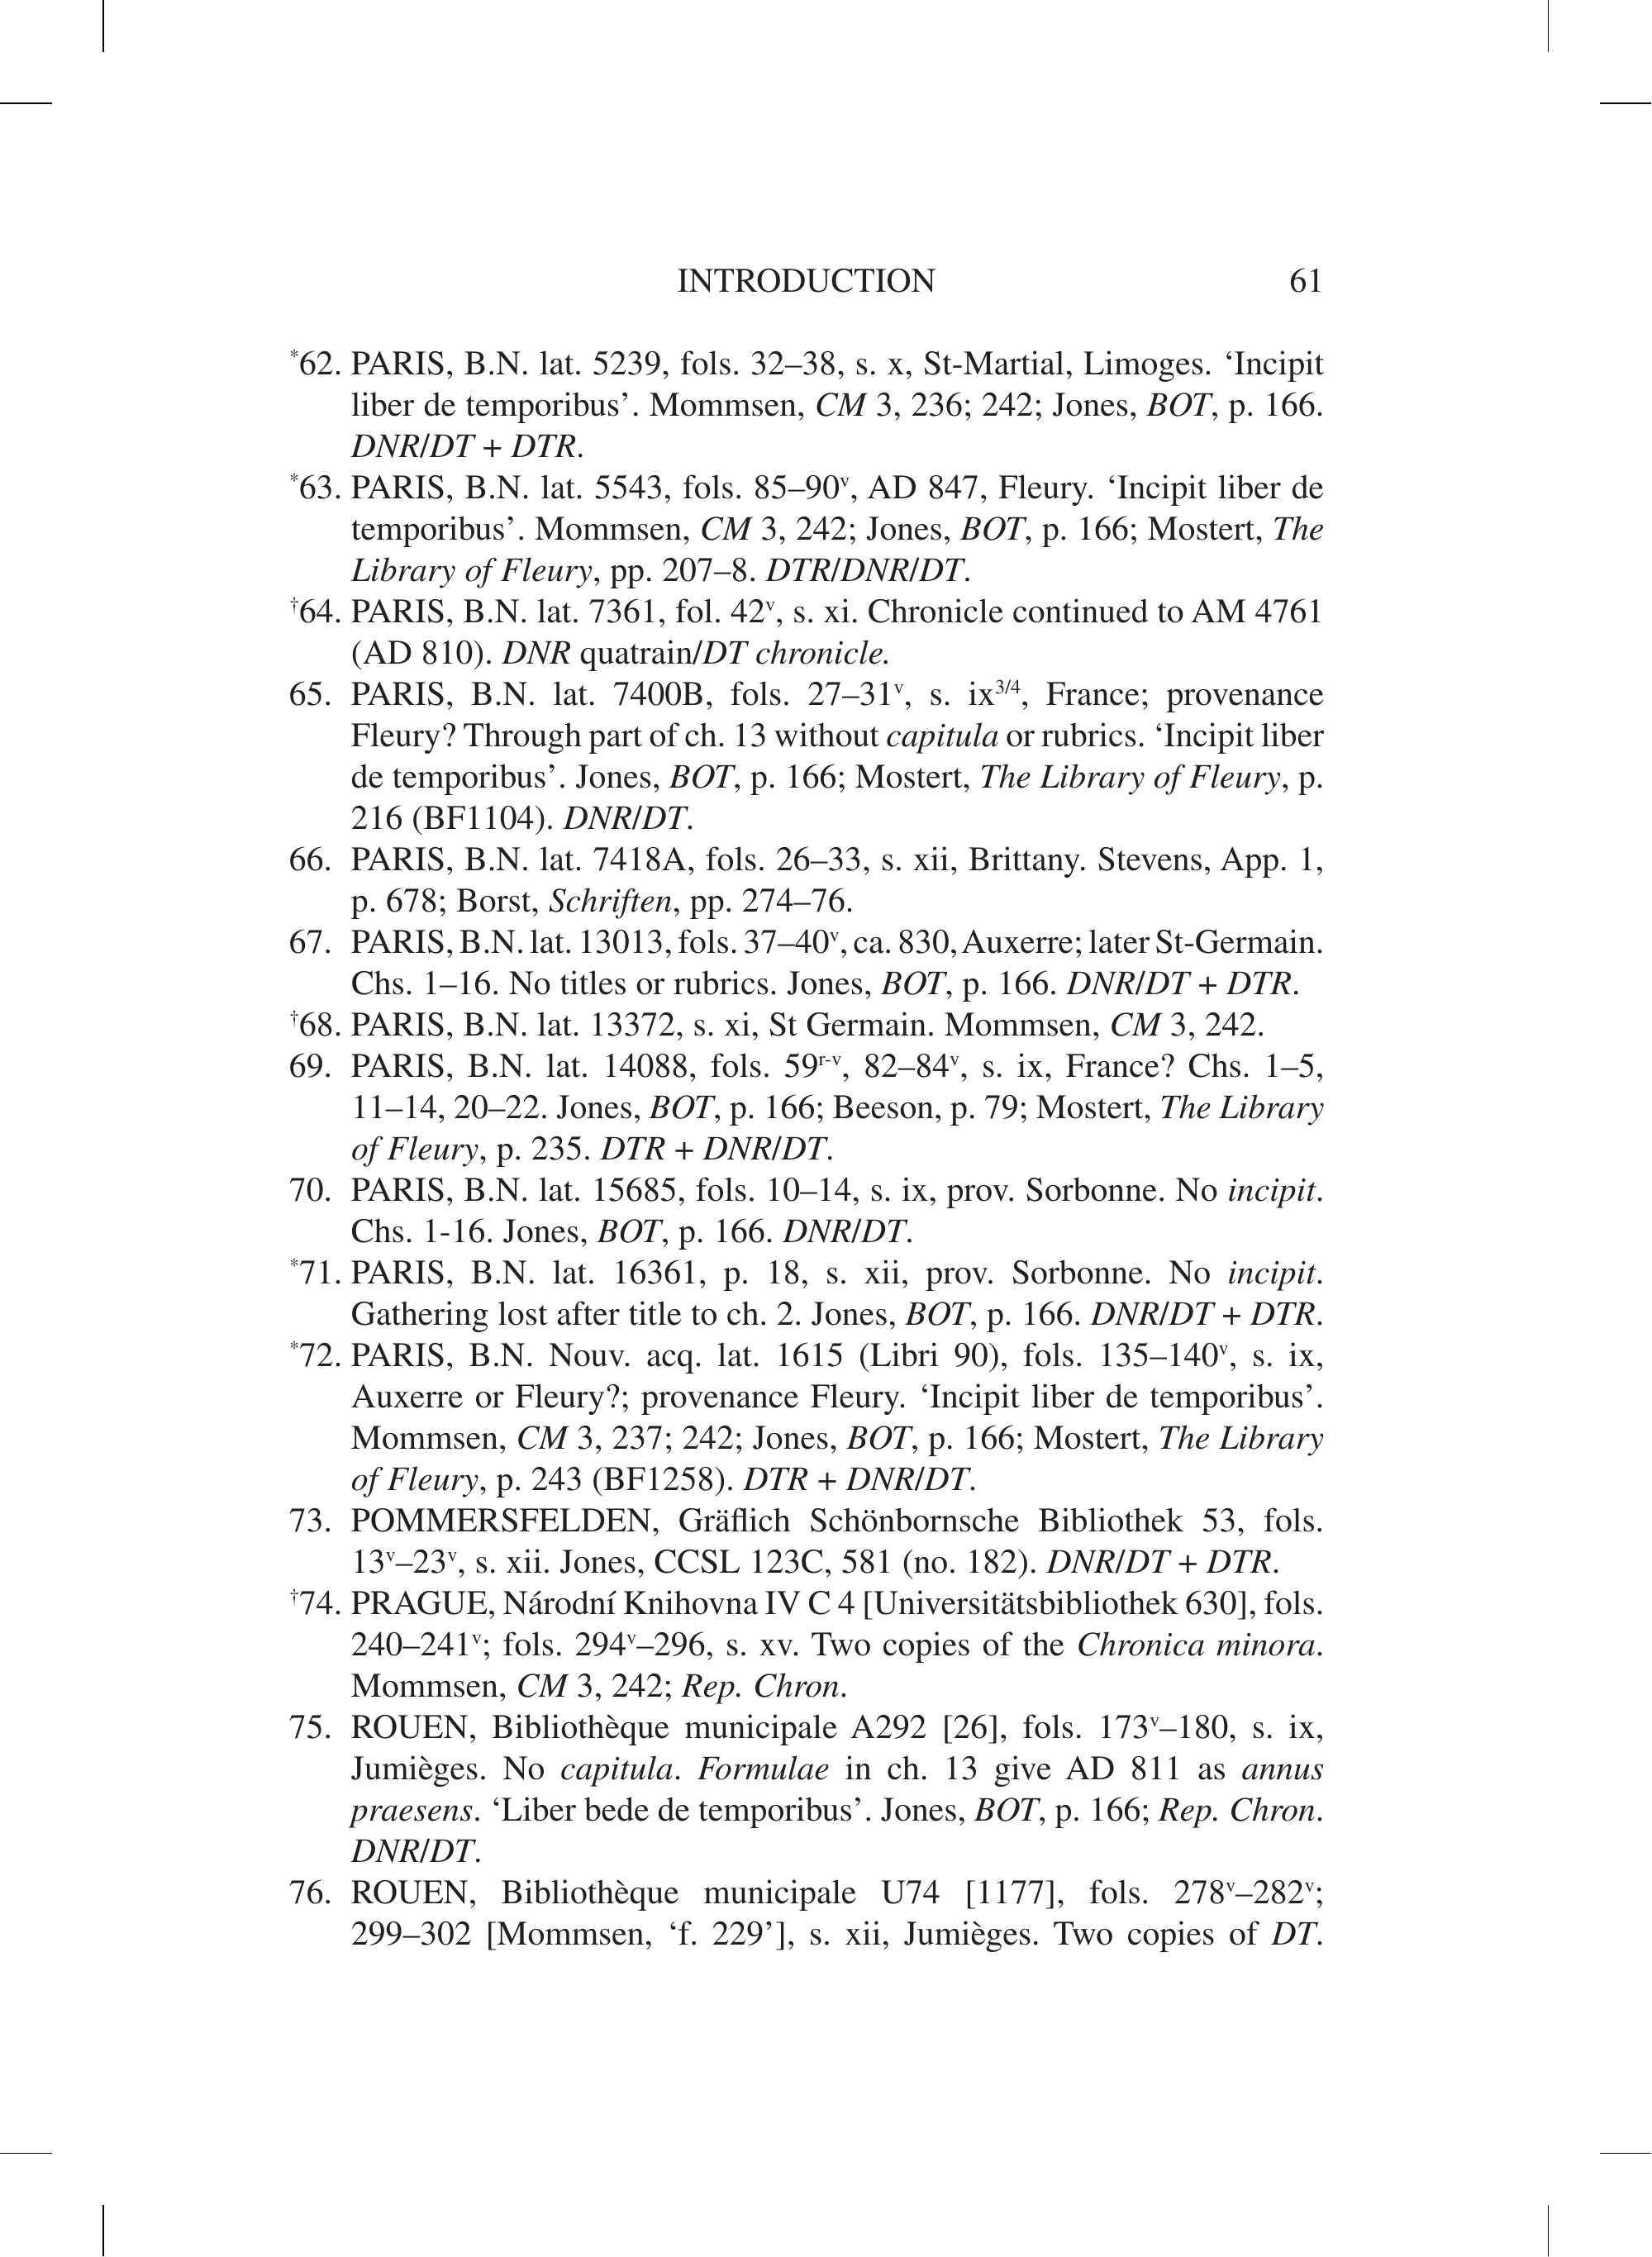 INTRODUCTION 61
*62. PARIS, B.N. lat. 5239, fols. 32–38, s. x, St-Martial, Limoges. ‘Incipit
liber de temporibus’. Mommsen, CM 3, 236; 242; Jones, BOT, p. 166.
DNR/DT + DTR.
*63. PARIS, B.N. lat. 5543, fols. 85–90ᵛ, AD 847, Fleury. ‘Incipit liber de
temporibus’. Mommsen, CM 3, 242; Jones, BOT, p. 166; Mostert, The
Library of Fleury, pp. 207–8. DTR/DNR/DT.
†64. PARIS, B.N. lat. 7361, fol. 42ᵛ, s. xi. Chronicle continued to AM 4761
(AD 810). DNR quatrain/DT chronicle.
65. PARIS, B.N. lat. 7400B, fols. 27–31ᵛ, s. ix³/⁴, France; provenance
Fleury? Through part of ch. 13 without capitula or rubrics. ‘Incipit liber
de temporibus’. Jones, BOT, p. 166; Mostert, The Library of Fleury, p.
216 (BF1104). DNR/DT.
66. PARIS, B.N. lat. 7418A, fols. 26–33, s. xii, Brittany. Stevens, App. 1,
p. 678; Borst, Schriften, pp. 274–76.
67. PARIS, B.N. lat. 13013, fols. 37–40ᵛ, ca. 830, Auxerre; later St-Germain.
Chs. 1–16. No titles or rubrics. Jones, BOT, p. 166. DNR/DT + DTR.
†68. PARIS, B.N. lat. 13372, s. xi, St Germain. Mommsen, CM 3, 242.
69. PARIS, B.N. lat. 14088, fols. 59ʳ⁻ᵛ, 82–84ᵛ, s. ix, France? Chs. 1–5,
11–14, 20–22. Jones, BOT, p. 166; Beeson, p. 79; Mostert, The Library
of Fleury, p. 235. DTR + DNR/DT.
70. PARIS, B.N. lat. 15685, fols. 10–14, s. ix, prov. Sorbonne. No incipit.
Chs. 1-16. Jones, BOT, p. 166. DNR/DT.
*71. PARIS, B.N. lat. 16361, p. 18, s. xii, prov. Sorbonne. No incipit.
Gathering lost after title to ch. 2. Jones, BOT, p. 166. DNR/DT + DTR.
*72. PARIS, B.N. Nouv. acq. lat. 1615 (Libri 90), fols. 135–140ᵛ, s. ix,
Auxerre or Fleury?; provenance Fleury. ‘Incipit liber de temporibus’.
Mommsen, CM 3, 237; 242; Jones, BOT, p. 166; Mostert, The Library
of Fleury, p. 243 (BF1258). DTR + DNR/DT.
73. POMMERSFELDEN, Gräflich Schönbornsche Bibliothek 53, fols.
13ᵛ–23ᵛ, s. xii. Jones, CCSL 123C, 581 (no. 182). DNR/DT + DTR.
†74. PRAGUE, Národní Knihovna IV C 4 [Universitätsbibliothek 630], fols.
240–241ᵛ; fols. 294ᵛ–296, s. xv. Two copies of the Chronica minora.
Mommsen, CM 3, 242; Rep. Chron.
75. ROUEN, Bibliothèque municipale A292 [26], fols. 173ᵛ–180, s. ix,
Jumièges. No capitula. Formulae in ch. 13 give AD 811 as annus
praesens. ‘Liber bede de temporibus’. Jones, BOT, p. 166; Rep. Chron.
DNR/DT.
76. ROUEN, Bibliothèque municipale U74 [1177], fols. 278ᵛ–282ᵛ;
299–302 [Mommsen, ‘f. 229’], s. xii, Jumièges. Two copies of DT.